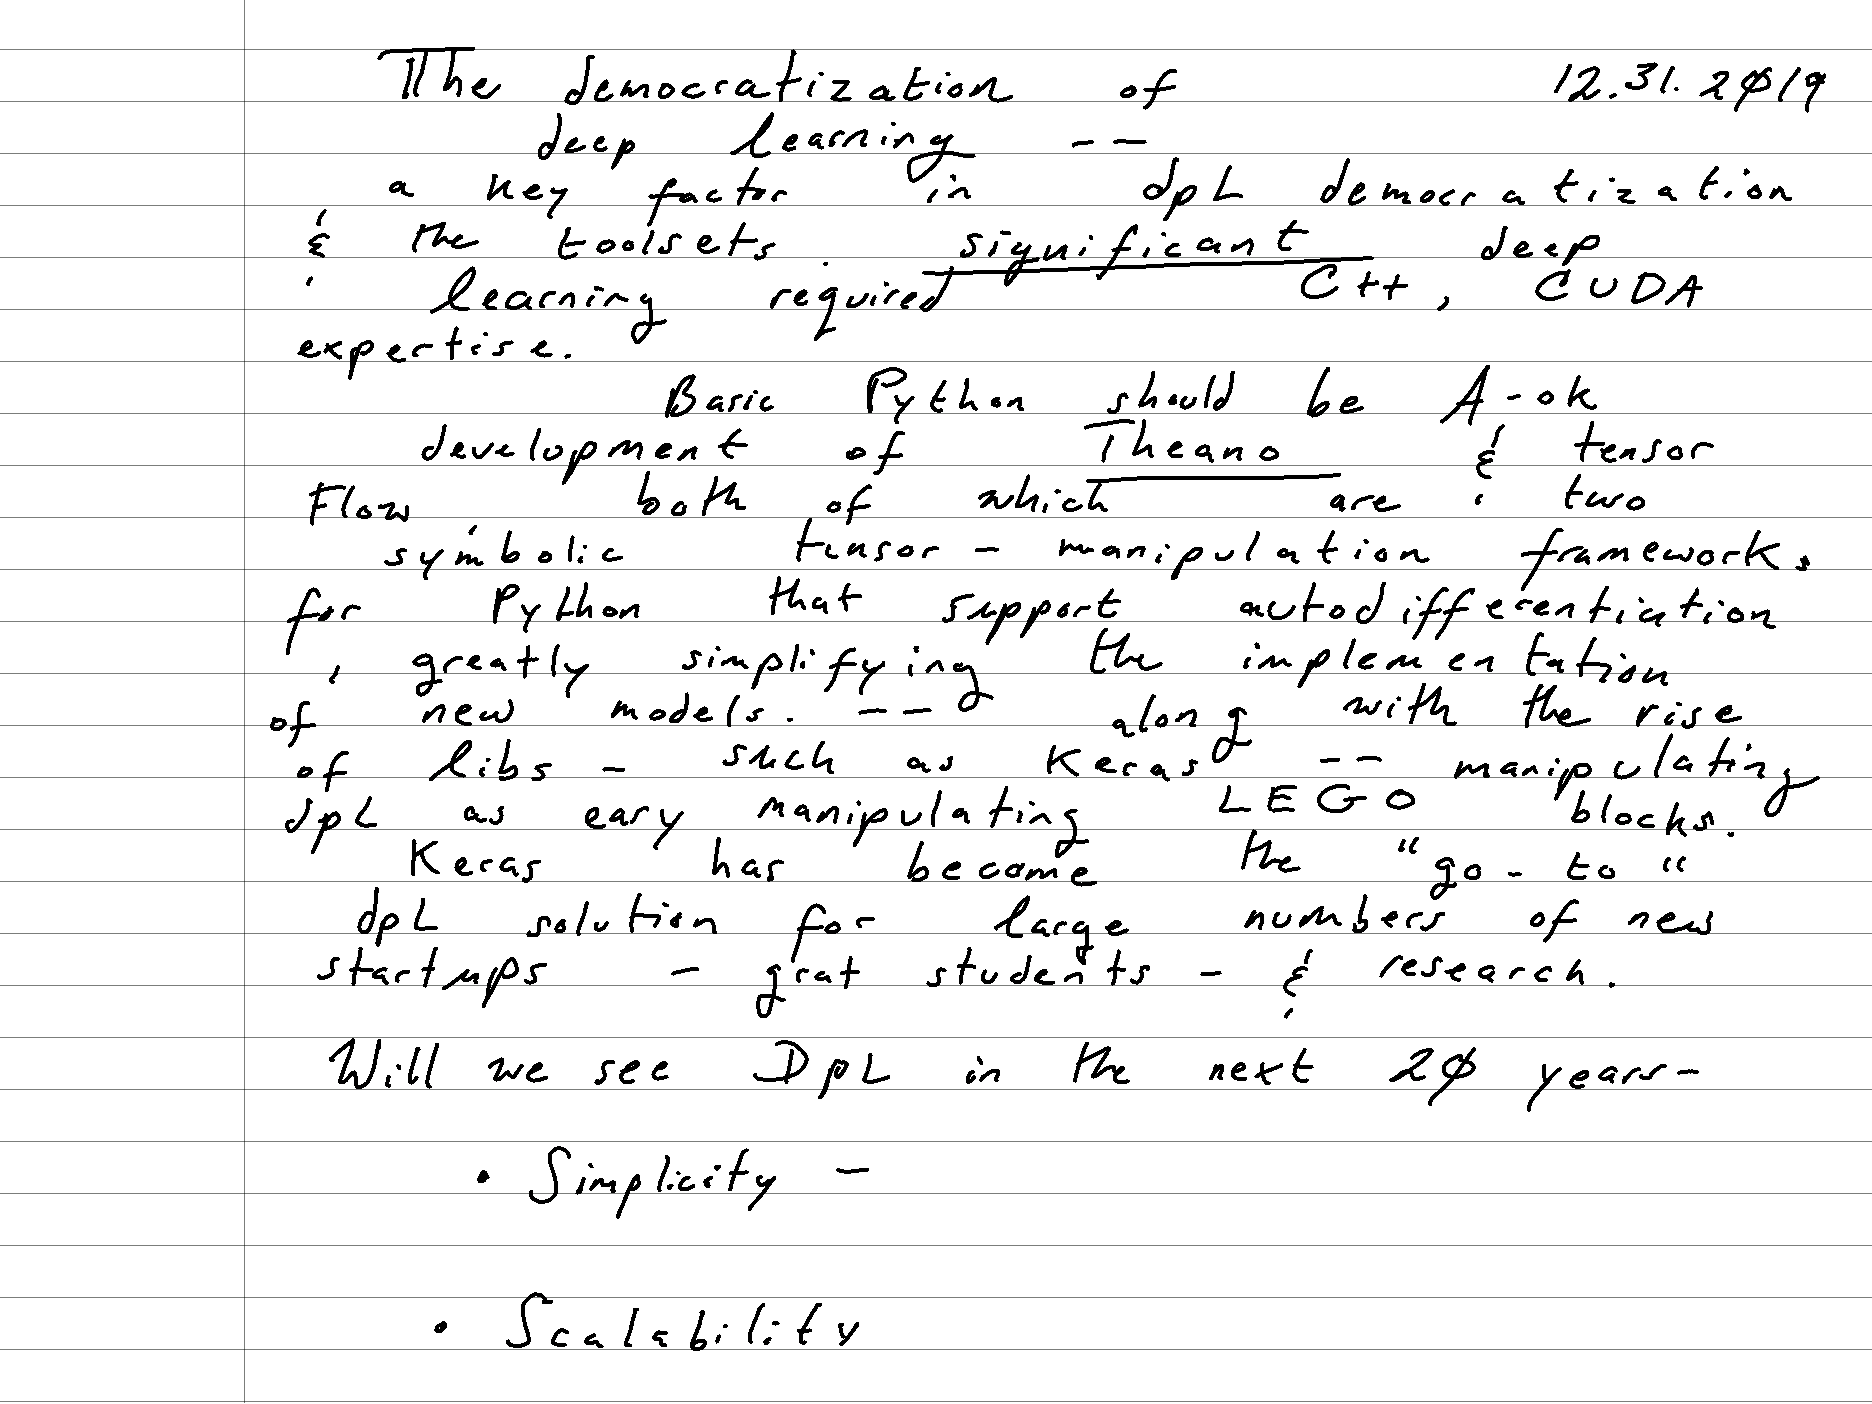 The democratization of 12.31.2019
deep learning --
a key factor in dpL democratization
& the toolsets. significant deep
learning required C++, CUDA
expertise.
Basic Python should be A-ok
development of Theano & tensor
Flow, both of which are two
symbolic tensor - manipulation frameworks
for Python that support autodifferentiation
, greatly simplifying the implementation
of new models. -- along with the rise
of libs - such as Keras -- manipulating
dpL as easy manipulating LEGO blocks.
Keras has become the "go-to"
dpL solution for large numbers of new
startups - grat students - & research.
Will we see DpL in the next 20 years-
• Simplicity -
• Scalability